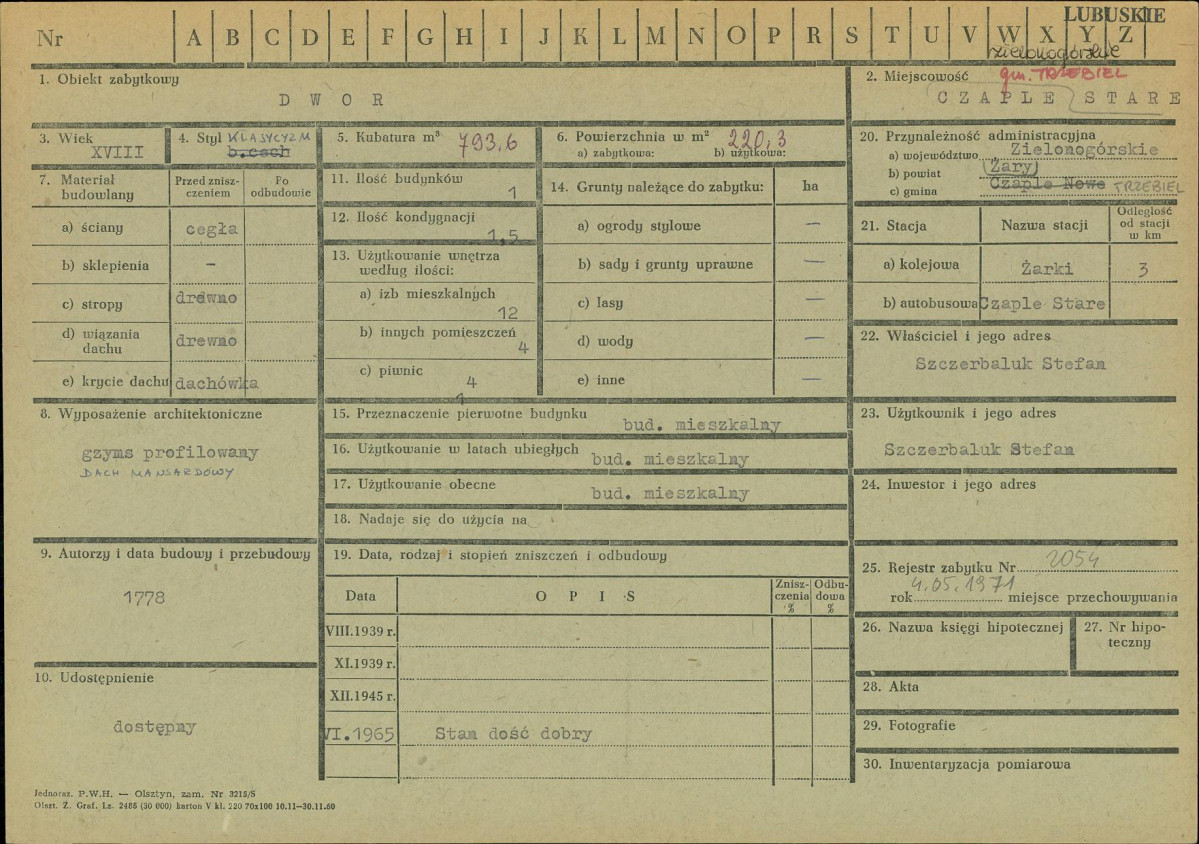 LUBUSKIE
Nr A B C D E F G H I J K L M N O P R S T U V W X Y Z
zielonogórskie
1. Obiekt zabytkowy
D W O R
2. Miejscowość gm. TRZEBIEL
CZAPLE STARE
3. Wiek
XVIII
4. Styl KLASYCYZM
b.cech
5. Kubatura m³ 793,6
6. Powierzchnia w m² 220,3
a) zabytkowa: b) użytkowa:
20. Przynależność administracyjna
a) województwo Zielonogórskie
b) powiat Żary
c) gmina Czaple Nowe TRZEBIEL
7. Materiał budowlany
Przed znisz-
czeniem
Po
odbudowie
a) ściany cegła
b) sklepienia –
c) stropy drewno
d) wiązania
dachu drewno
e) krycie dachu dachówka
11. Ilość budynków
1
12. Ilość kondygnacji
1,5
13. Użytkowanie wnętrza
według ilości:
a) izb mieszkalnych
12
b) innych pomieszczeń
4
c) piwnic
4
1
14. Grunty należące do zabytku: ha
a) ogrody stylowe —
b) sady i grunty uprawne —
c) lasy —
d) wody —
e) inne —
21. Stacja Nazwa stacji
Odległość
od stacji
w km
a) kolejowa Żarki 3
b) autobusowa Czaple Stare
22. Właściciel i jego adres
Szczerbaluk Stefan
8. Wyposażenie architektoniczne
gzyms profilowany
DACH MANSARDOWY
15. Przeznaczenie pierwotne budynku
bud. mieszkalny
16. Użytkowanie w latach ubiegłych
bud. mieszkalny
17. Użytkowanie obecne
bud. mieszkalny
18. Nadaje się do użycia na
23. Użytkownik i jego adres
Szczerbaluk Stefan
24. Inwestor i jego adres
9. Autorzy i data budowy i przebudowy
1778
19. Data, rodzaj i stopień zniszczeń i odbudowy
Data O P I S
Znisz-
czenia
%
Odbu-
dowa
%
VIII.1939 r.
XI.1939 r.
XII.1945 r.
VI.1965 Stan dość dobry
25. Rejestr zabytku Nr 2054
rok 4.05.1971 miejsce przechowywania
26. Nazwa księgi hipotecznej
27. Nr hipo-
teczny
10. Udostępnienie
dostępny
28. Akta
29. Fotografie
30. Inwentaryzacja pomiarowa
Jednoraz. P.W.H. — Olsztyn, zam. Nr 3215/S
Olszt. Z. Graf. Lz. 2486 (30 000) karton V kl. 220 70x100 10.11—30.11.60